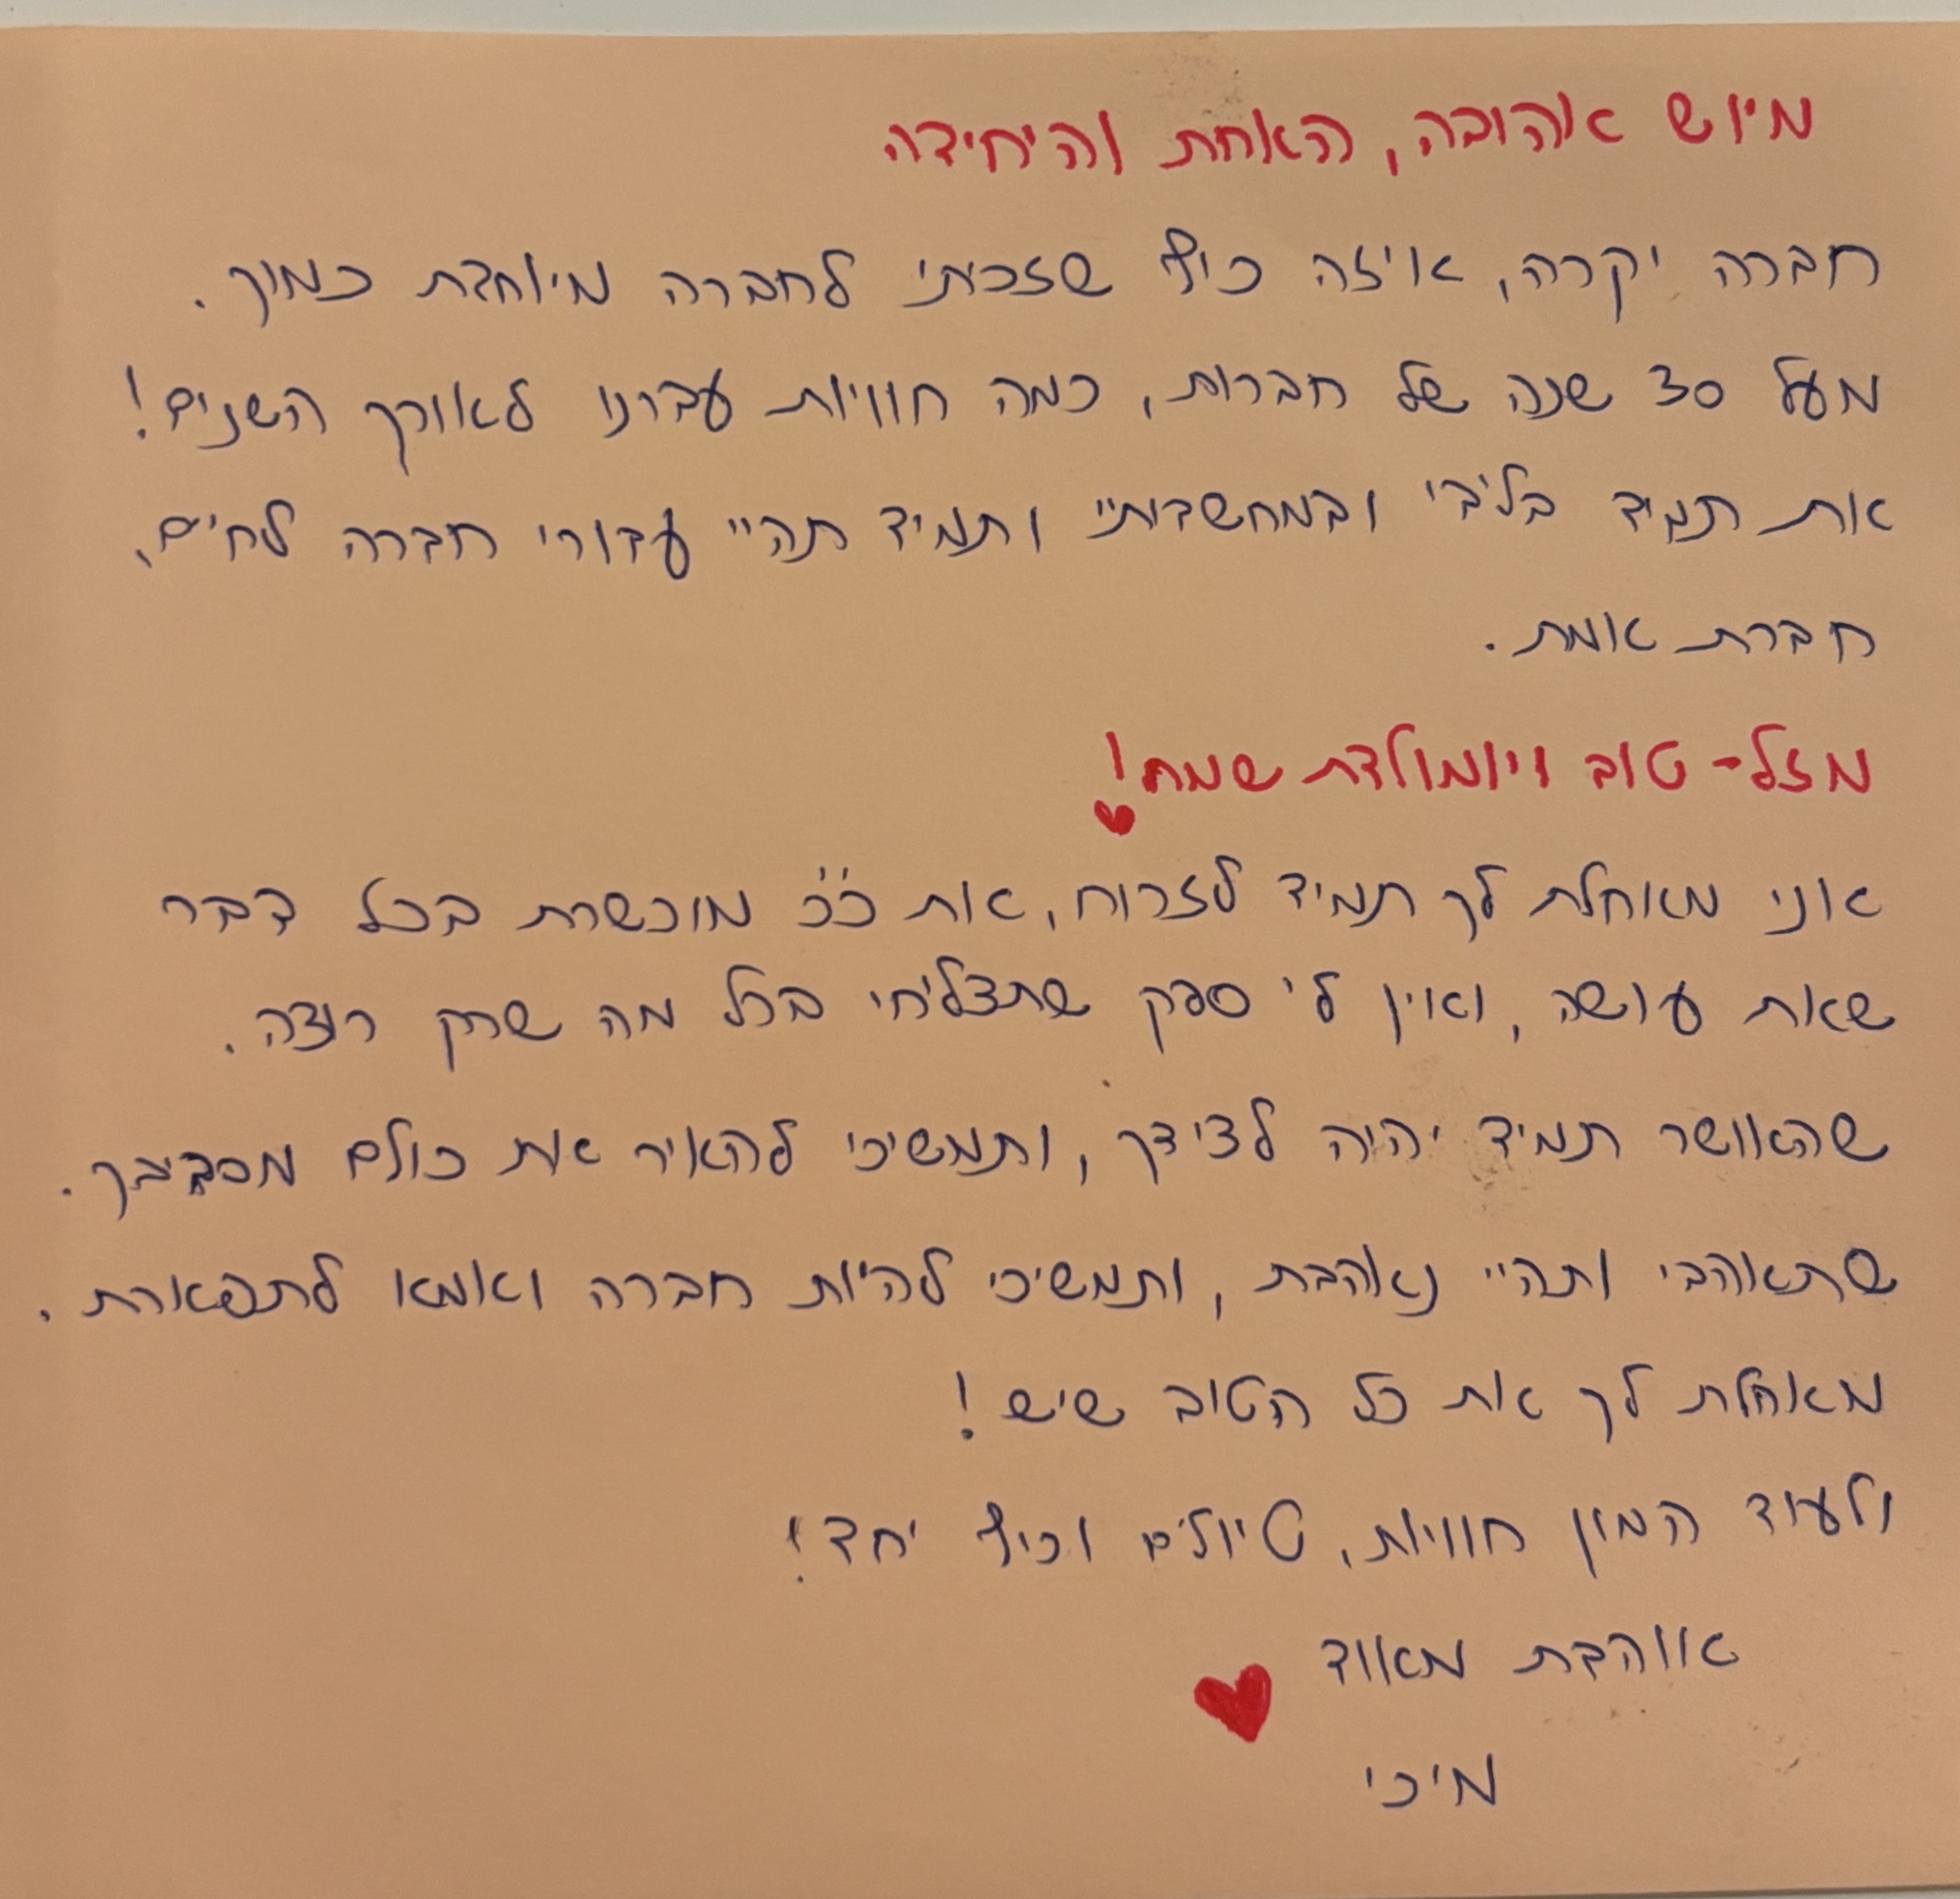 מיוש אהובה, האחת והיחידה
חברה יקרה, איזה כיף שזכיתי לחברה מיוחדת כמוך.
מעל 30 שנה של חברות, כמה חוויות עברנו לאורך השנים!
את תמיד בליבי ובמחשבותיי ותמיד תהיי עבורי חברה לחיים,
חברת אמת.
מזל-טוב ויומולדת שמח!
אני מאחלת לך תמיד לזרוח, את כ"כ מוכשרת בכל דבר
שאת עושה, ואין לי ספק שתצליחי בכל מה שרק רוצה.
שהאושר תמיד יהיה לצידך, ותמשיכי להאיר את כולם מסביבך.
שתאהבי ותהיי נאהבת, ותמשיכי להיות חברה ואמא לתפארת.
מאחלת לך את כל הטוב שיש!
ולעוד המון חוויות, טיולים וכיף יחד!
אוהבת מאוד
מיכי